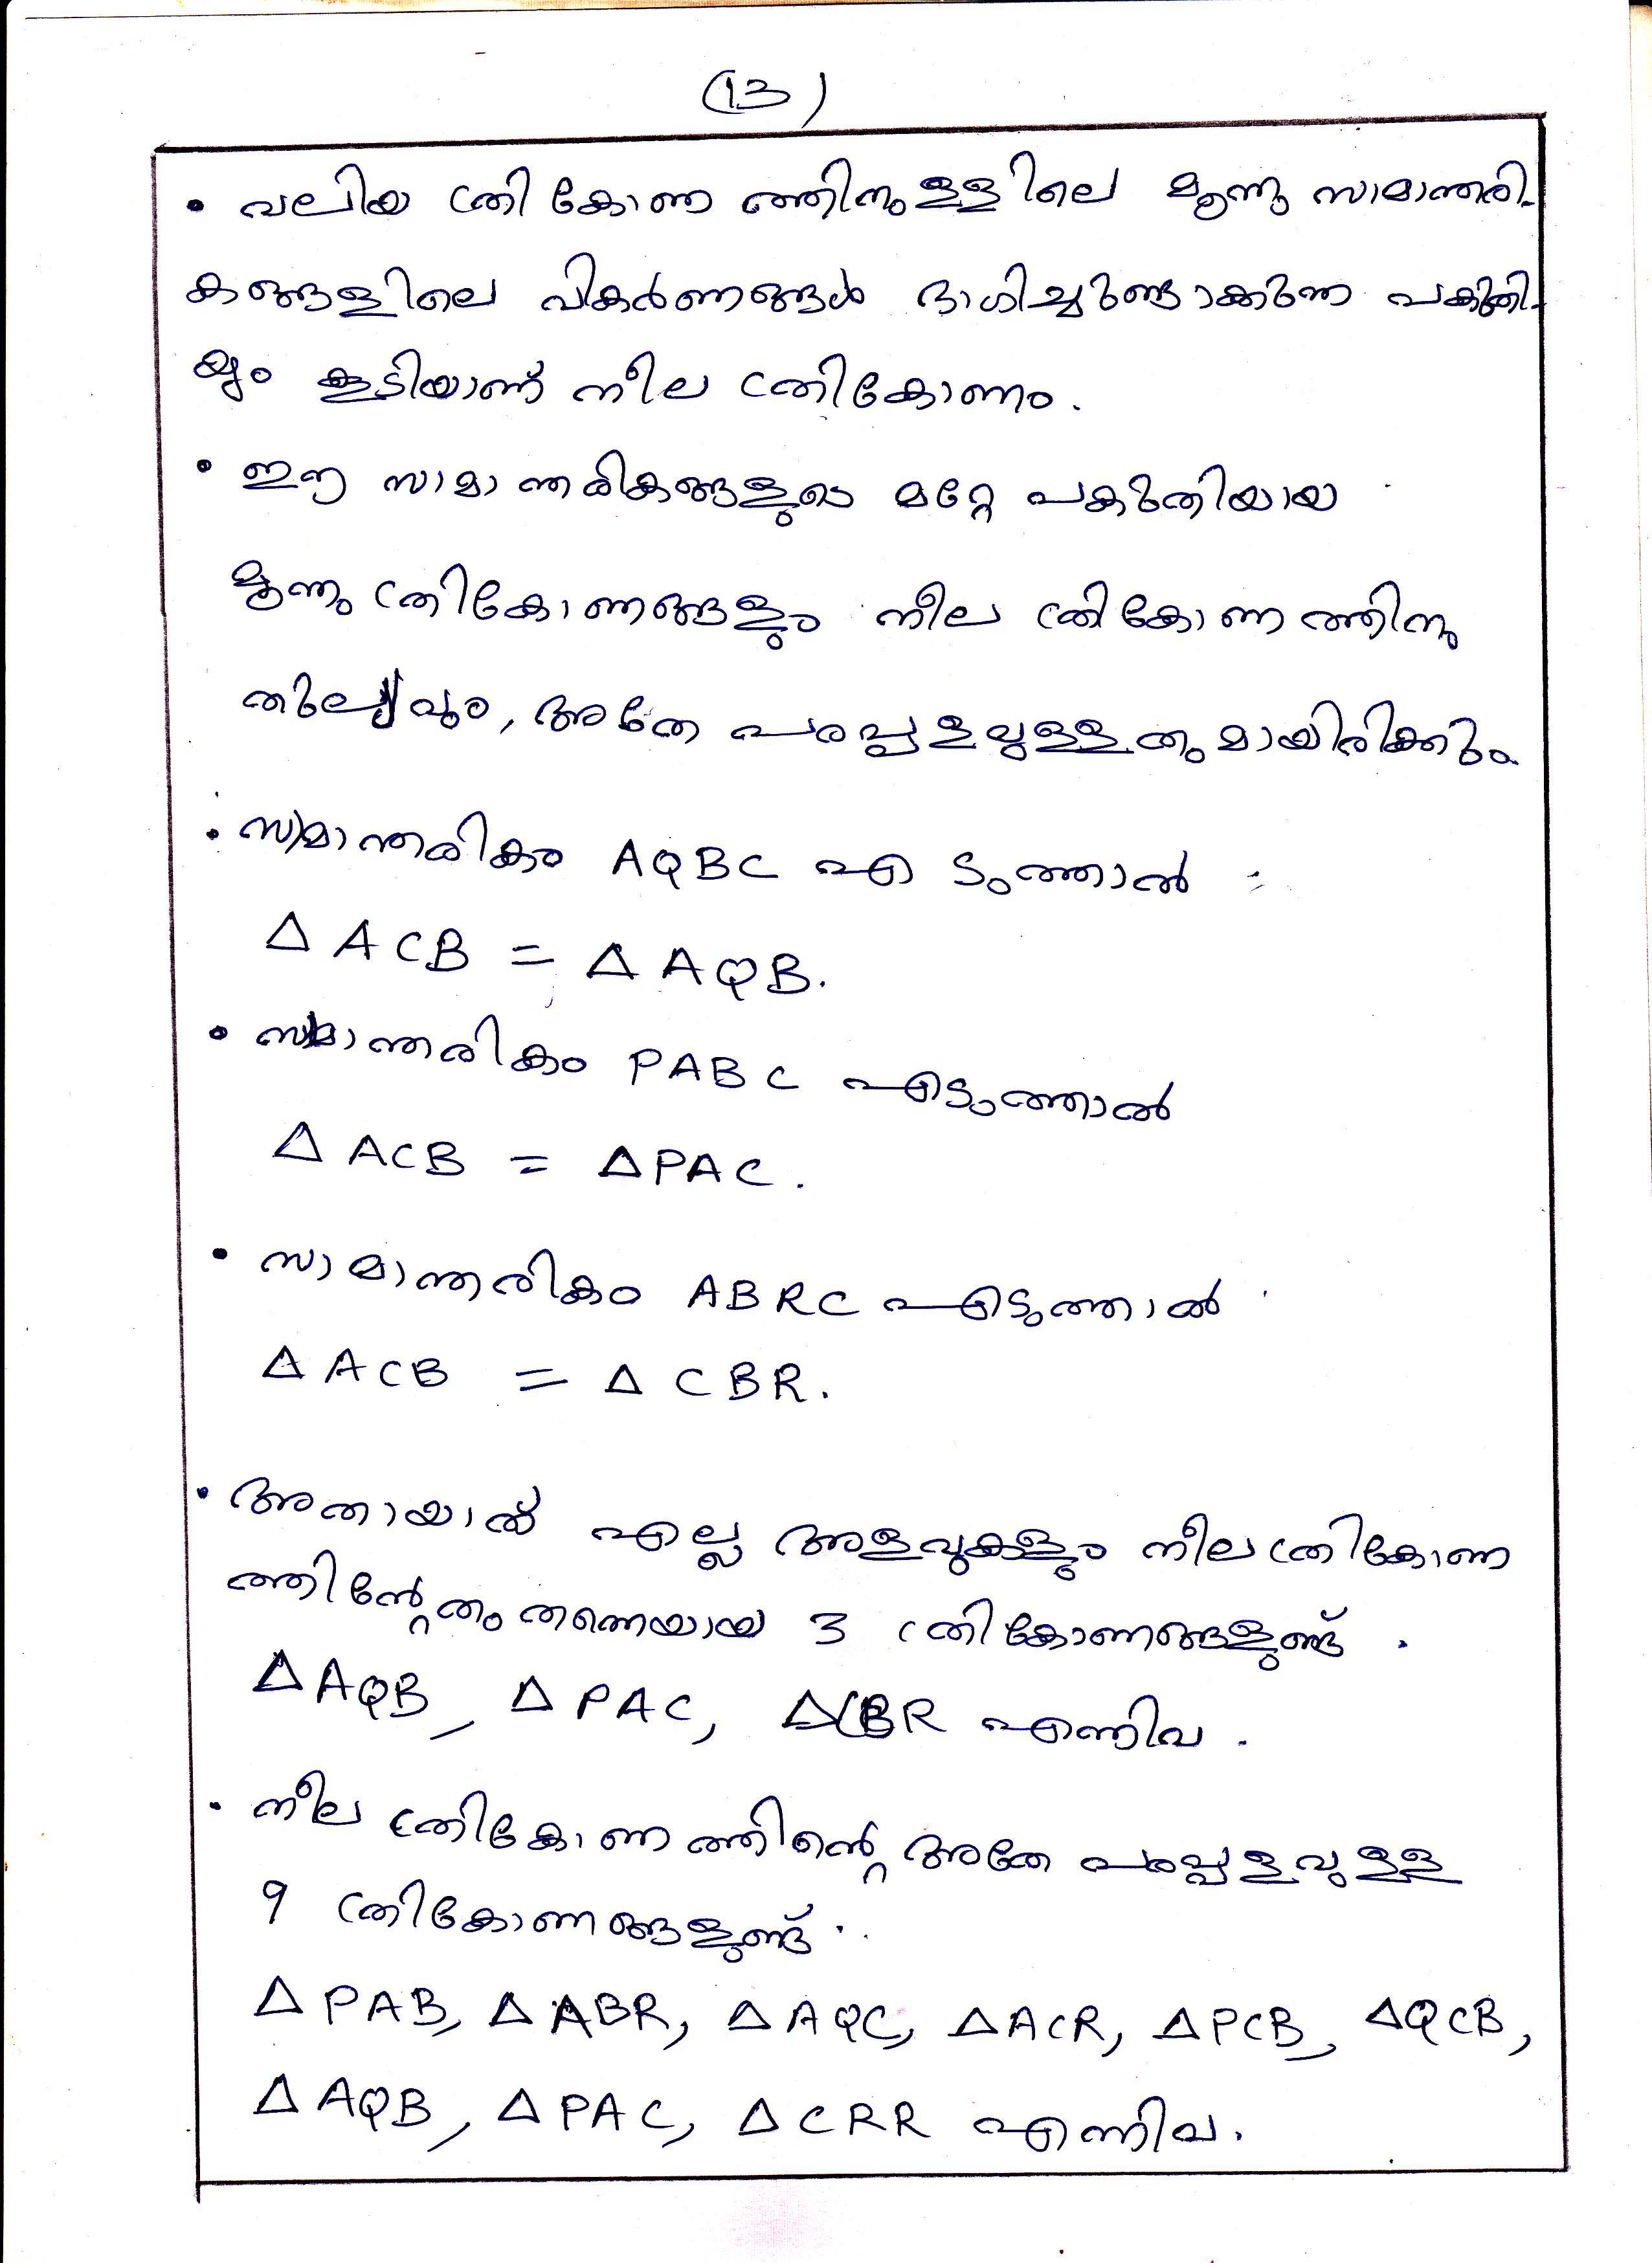 (13)
• വലിയ ത്രികോണത്തിനുള്ളിലെ മൂന്നു സാമാന്തരി-
കങ്ങളിലെ വികർണങ്ങൾ ഭാഗിച്ചുണ്ടാക്കുന്ന പകുതി-
യും കൂടിയാണ് നീല ത്രികോണം.
• ഈ സാമാന്തരികങ്ങളുടെ മറ്റേ പകുതിയായ
മൂന്നു ത്രികോണങ്ങളും നീല ത്രികോണത്തിനു
തുല്യവും, അതേ പരപ്പളവുള്ളതുമായിരിക്കും.
• സാമാന്തരികം AQBC എടുത്താൽ
△ ACB = △ AQB.
• സാമാന്തരികം PABC എടുത്താൽ
△ ACB = △PAC.
• സാമാന്തരികം ABRC എടുത്താൽ
△ ACB = △ CBR.
• അതായത് എല്ലാ അളവുകളും നീലത്രികോണ
ത്തിന്റേതുതന്നെയായ 3 ത്രികോണങ്ങളുണ്ട്.
△AQB, △PAC, △CBR എന്നിവ.
• നീല ത്രികോണത്തിന്റെ അതേ പരപ്പളവുള്ള
9 ത്രികോണങ്ങളുണ്ട്.
△PAB, △ABR, △AQC, △ACR, △PCB, △QCB,
△AQB, △PAC, △CRR എന്നിവ.